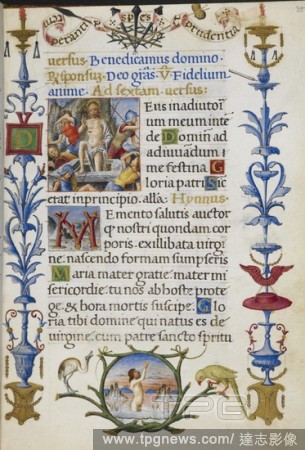 perantia spes prudentia
uersus. Benedicamus domino.
Responsus. Deo gr̄as. V. Fidelium
anime. Ad sextam. uersus.
Eus inadiutori
um meum inten
de Domin ad
adiuuādum m
e festina. G
loria patri Sic
erat inprincipio. allā. Hymnus.
Memento salutis auctor
q nostri quondam cor
poris. exillibata uirgi
ne. nascendo formam sumpseris
Maria mater gratie. mater mi
sericordie. tu nos ab hoste prote
ge. & hora mortis suscipe. Glo
ria tibi domine qui natus es de
uirgine. cum patre. sancto spiritu
D
TPG
www.tpgnews.com/ 達志影像